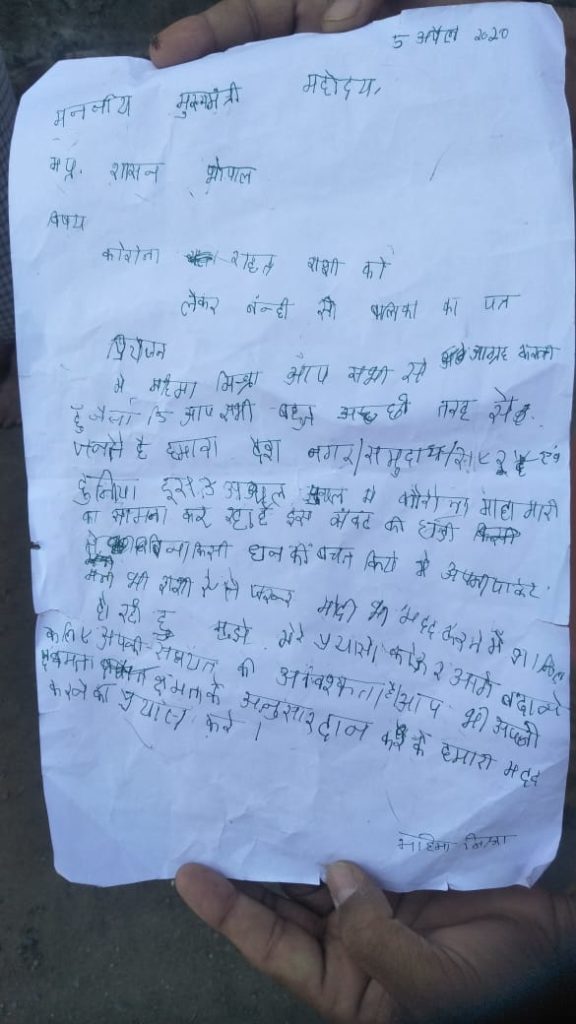 5 अप्रैल 2020
मननीय मुख्यमंत्री महोदय,
म.प्र. शासन भोपाल
विषय
कोरोना राहत राशी को
लेकर नन्ही सी बालिका का पत
प्रियोजन
मै महिमा मिश्रा आप सभी से आग्रह करती
हुँ जैसा कि आप सभी बहुत अच्छी तरह से
जनते है हमारा देश नगर/समुदाय/
दुनिया इस में कोरोना माहामारी
का सामना कर रहा है इस संकट की घड़ी
बिना किसी धन की बचत किये मै अपनी पाकेट
मनी की राशी से मोदी मदद करने में शामिल
हो रही हु मुझे मेरे प्रयासो को और आगे बढ़ाने
के लिए आपकी की आवश्यकता है। आप भी अपनी
क्षमता के अनुसार दान करके हमारी मदद
करने की प्रयास करे।
महिमा मिश्रा